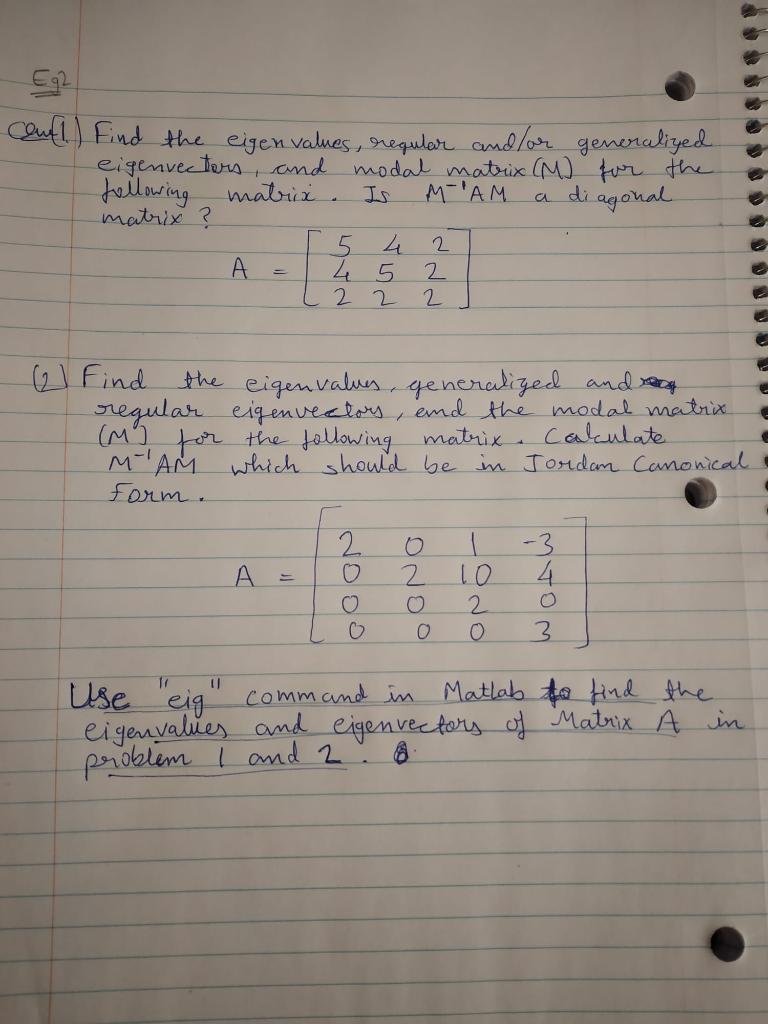 Eg2
1.) Find the eigenvalues, regular and/or generalized
eigenvectors, and modal matrix (M) for the
following matrix. Is M⁻¹AM a diagonal
matrix?
A = [ 5 4 2
4 5 2
2 2 2 ]
(2) Find the eigenvalues, generalized and
regular eigenvectors, and the modal matrix
(M) for the following matrix. Calculate
M⁻¹AM which should be in Jordan Canonical
Form.
A = [ 2 0 1 -3
0 2 10 4
0 0 2 0
0 0 0 3 ]
Use "eig" command in Matlab to find the
eigenvalues and eigenvectors of Matrix A in
problem 1 and 2.